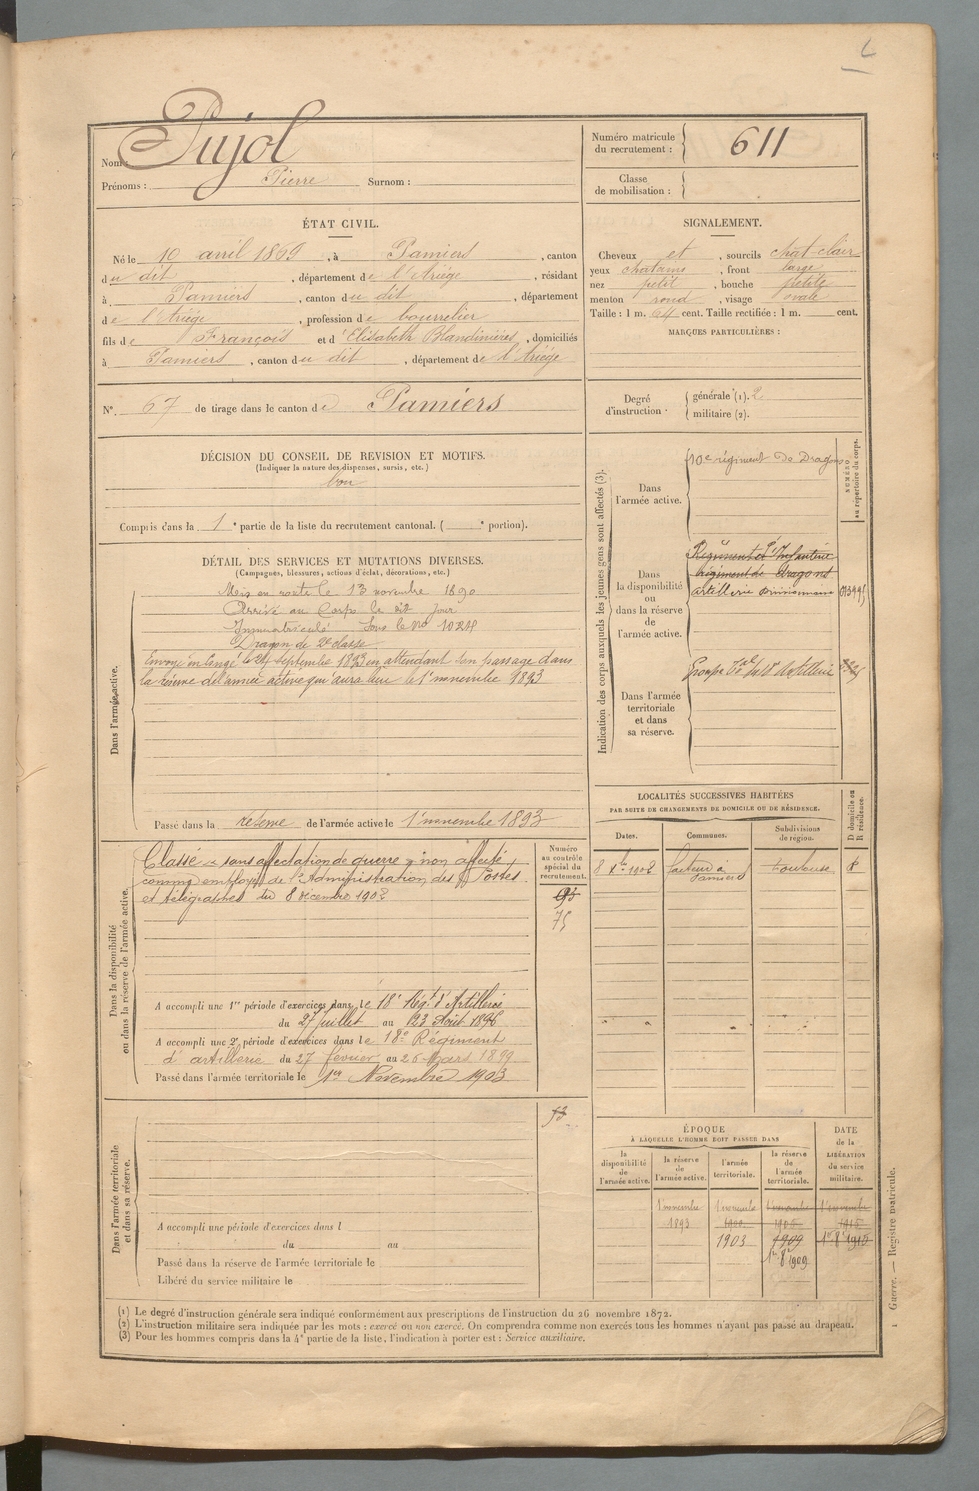 Nom : Pujol
Prénoms : Pierre Surnom :
Numéro matricule du recrutement : 611
Classe de mobilisation :
ÉTAT CIVIL.
Né le 10 avril 1869, à Pamiers, canton
du dit, département de l'Ariége, résidant
à Pamiers, canton du dit, département
de l'Ariége, profession de bourrelier
fils de François et d'Elisabeth Blandinières, domiciliés
à Pamiers, canton du dit, département de l'Ariége
SIGNALEMENT.
Cheveux et, sourcils chat-clair
yeux chatains, front large
nez petit, bouche petite
menton rond, visage ovale
Taille : 1 m. 64 cent. Taille rectifiée : 1 m. cent.
MARQUES PARTICULIÈRES :
N° 67 de tirage dans le canton de Pamiers
Degré d'instruction
générale (1). 2
militaire (2).
DÉCISION DU CONSEIL DE REVISION ET MOTIFS.
(Indiquer la nature des dispenses, sursis, etc.)
bon
Compris dans la 1e partie de la liste du recrutement cantonal. ( e portion).
DÉTAIL DES SERVICES ET MUTATIONS DIVERSES.
(Campagnes, blessures, actions d'éclat, décorations, etc.)
Dans l'armée active.
Mis en route le 13 novembre 1890
Arrivé au Corps le dit jour
Immatriculé sous le No
Dragon de 2e classe
Envoyé en congé le septembre 1893 en attendant son passage dans
la réserve de l'armée active qui aura lieu le 1r novembre 1893
Passé dans la réserve de l'armée active le 1r novembre 1893
Indication des corps auxquels les jeunes gens sont affectés (3).
NUMÉRO au répertoire du corps.
Dans l'armée active.
10e régiment de Dragons
Dans la disponibilité ou dans la réserve de l'armée active.
Régiment d'Infanterie
régiment de dragons
artillerie divisionnaire
Dans l'armée territoriale et dans sa réserve.
Groupe Artillerie
LOCALITÉS SUCCESSIVES HABITÉES
PAR SUITE DE CHANGEMENTS DE DOMICILE OU DE RÉSIDENCE.
Dates. Communes. Subdivisions de région. D domicile ou R résidence.
8 Xbre 1902 facteur à Pamiers Toulouse
Dans la disponibilité ou dans la réserve de l'armée active.
Numéro au contrôle spécial du recrutement.
93
75
Classé sans affectation de guerre non affecté
comme employé de l'Administration des Postes
et télégraphes du 8 décembre 1902
A accompli une 1re période d'exercices dans le 18e Régt d'Artillerie
du 27 Juillet au 23 Août 1896
A accompli une 2e période d'exercices dans le 18e Régiment
d'artillerie du 27 février au 26 Mars 1899
Passé dans l'armée territoriale le 1er Novembre 1903
Dans l'armée territoriale et dans sa réserve.
A accompli une période d'exercices dans l
du au
Passé dans la réserve de l'armée territoriale le
Libéré du service militaire le
ÉPOQUE
À LAQUELLE L'HOMME DOIT PASSER DANS
la disponibilité de l'armée active.
la réserve de l'armée active.
l'armée territoriale.
la réserve de l'armée territoriale.
DATE de la LIBÉRATION du service militaire.
1r novembre 1r novembre 1r novembre 1r novembre
1893 1900
1903 1909 1r 8e 1915
1r 8e 1909
(1) Le degré d'instruction générale sera indiqué conformément aux prescriptions de l'instruction du 26 novembre 1872.
(2) L'instruction militaire sera indiquée par les mots : exercé ou non exercé. On comprendra comme non exercés tous les hommes n'ayant pas passé au drapeau.
(3) Pour les hommes compris dans la 4e partie de la liste, l'indication à porter est : Service auxiliaire.
1 Guerre. — Registre matricule.